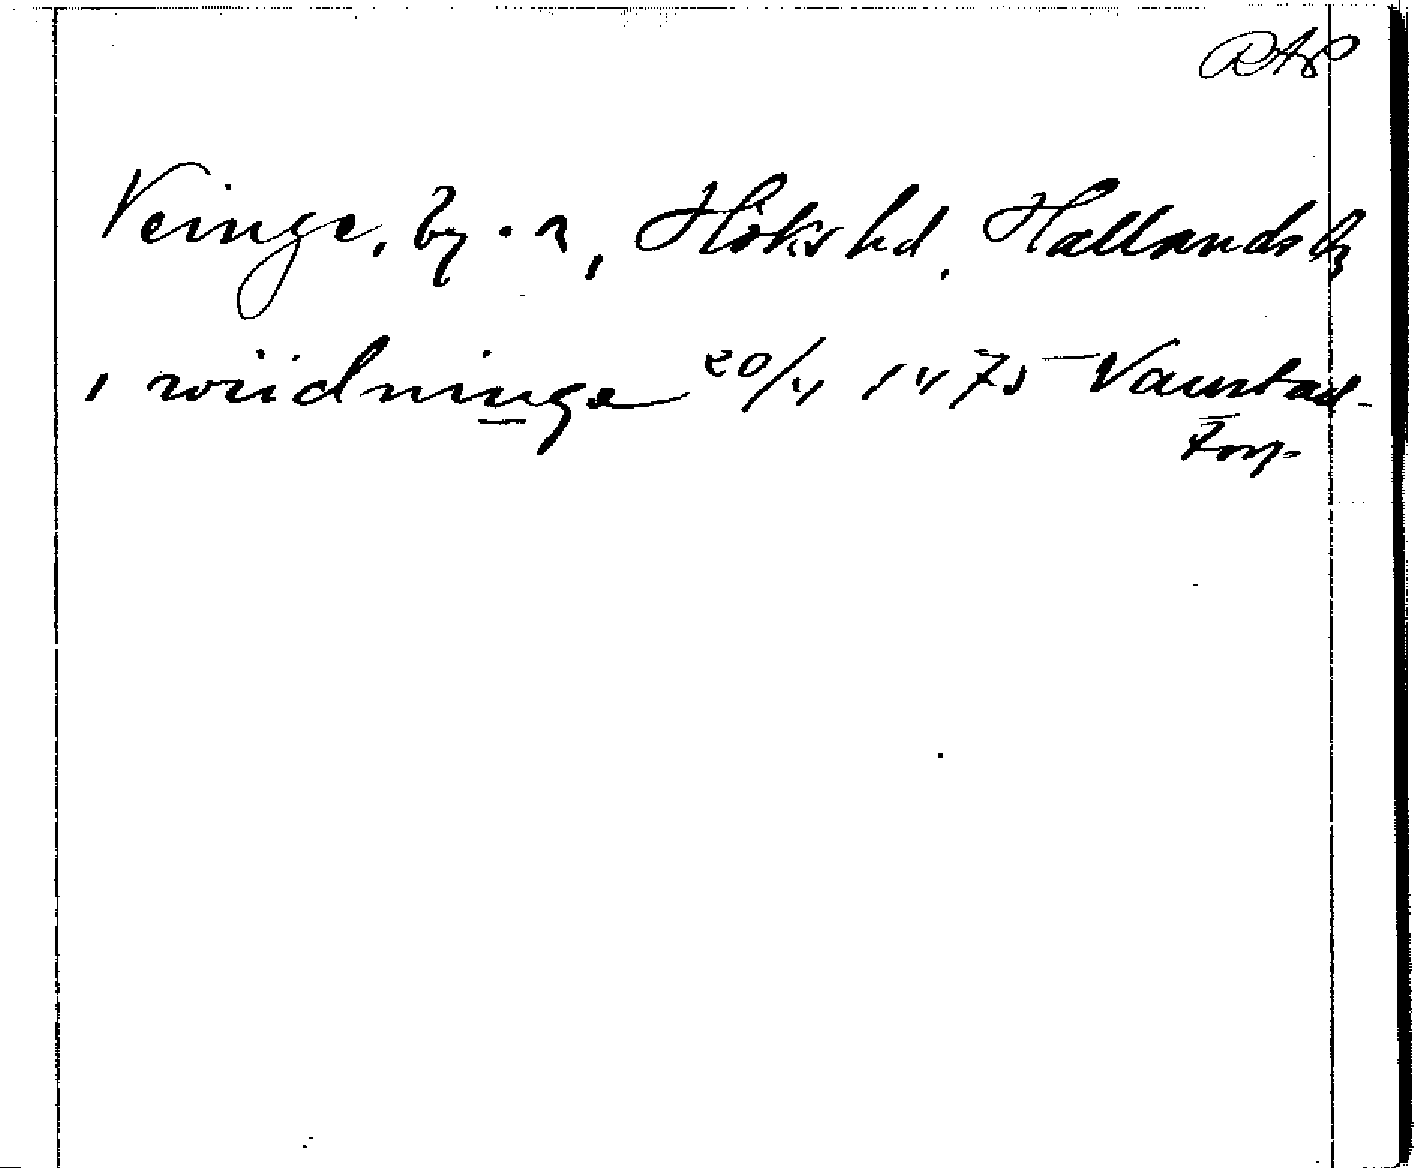 RAP
Veinge, by o. sn, Höks hd, Hallands l.
i wiidninge 20/4 1475 Vamstad-
torp